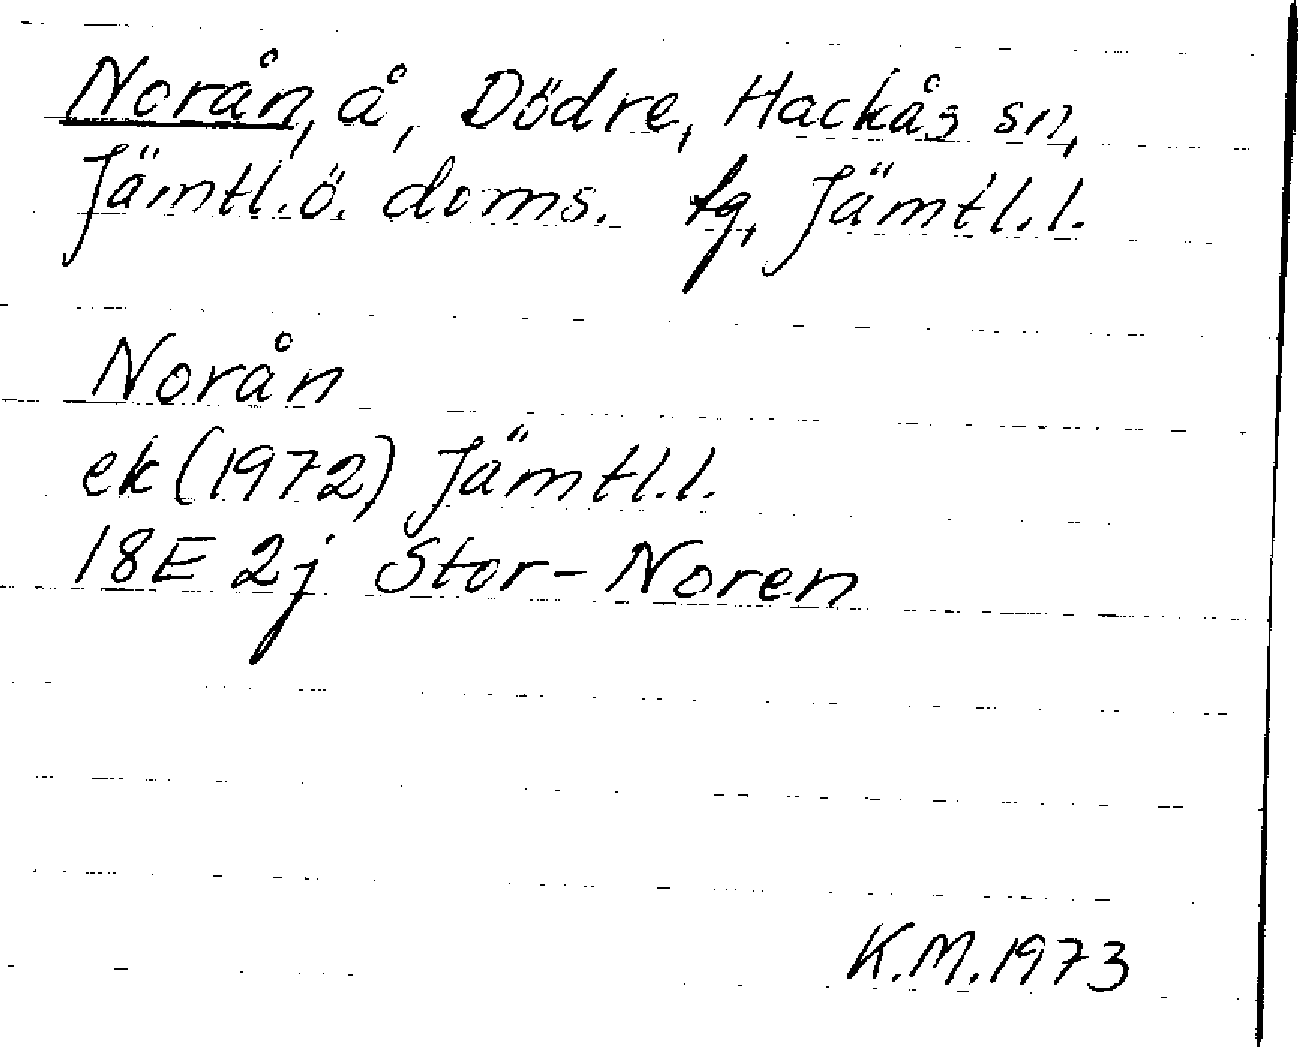 Norån, å, Dödre, Hackås sn,
Jämtl.ö. doms. tg, Jämtl.l.
Norån
ek (1972) Jämtl.l.
18E 2j Stor-Noren
K.M.1973